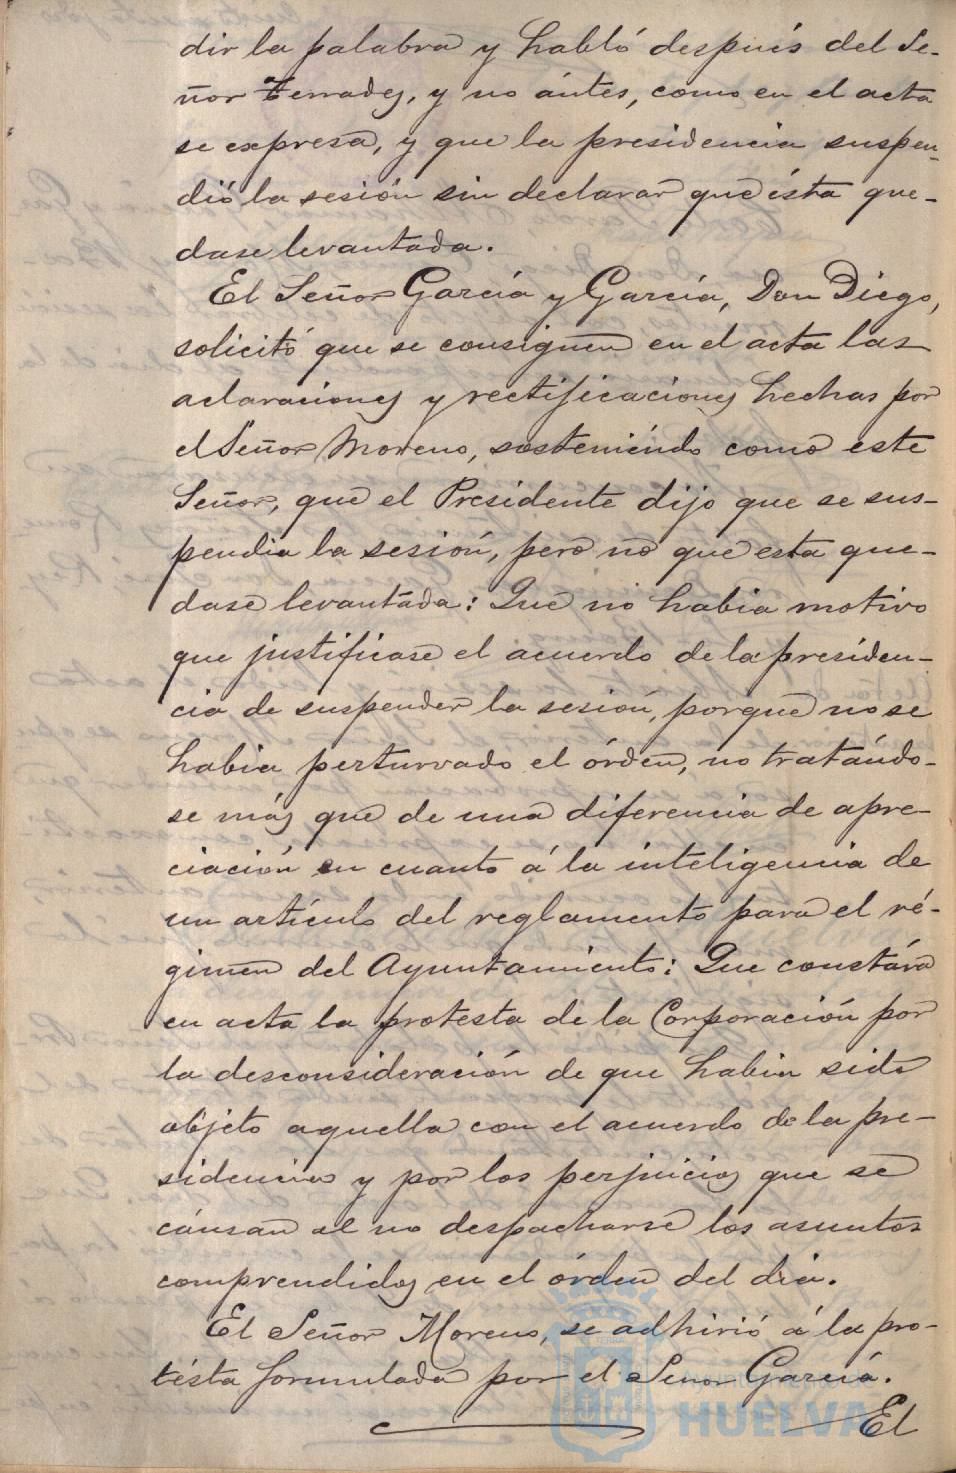 dir la palabra y habló después del Se-
ñor Terrades, y no ántes, como en el acta
se expresa, y que la presidencia suspen-
dió la sesión sin declarar que ésta que-
dase levantada.
El Señor García y García, Don Diego,
solicitó que se consignen en el acta las
aclaraciones y rectificaciones hechas por
el Señor Moreno, sosteniéndo como este
Señor, que el Presidente dijo que se sus-
pendia la sesión, pero no que esta que-
dase levantada: Que no habia motivo
que justificase el acuerdo de la presiden-
cia de suspender la sesión, porque no se
habia perturvado el órden, no tratándo-
se más que de una diferencia de apre-
ciación en cuanto á la inteligencia de
un artículo del reglamento para el ré-
gimen del Ayuntamiento: Que constára
en acta la protesta de la Corporación por
la desconsideración de que habia sido
objeto aquella con el acuerdo de la pre-
sidencia y por los perjuicios que se
cáusan al no despacharse los asuntos
comprendidos en el órden del dia.
El Señor Moreno, se adhirió á la pro-
tésta formulada por el Señor García.
El
HUELVA